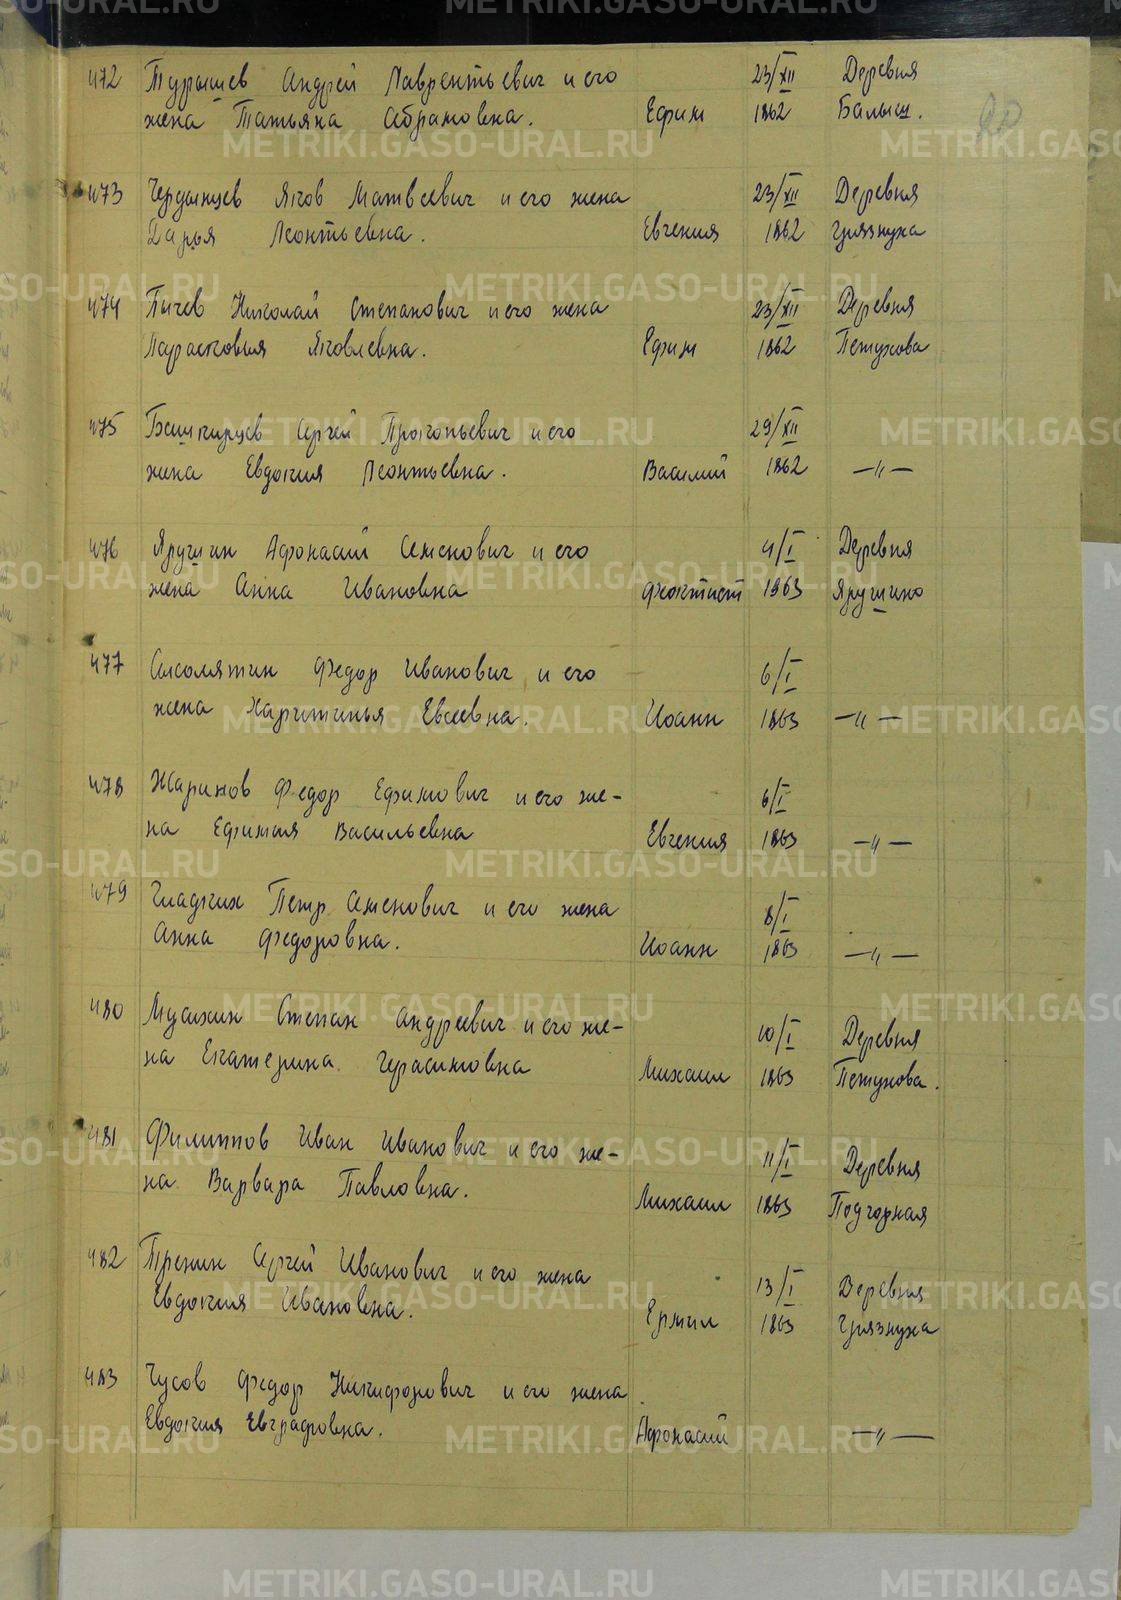 472 Турышев Андрей Лаврентьевич и его 23/XII Деревня
жена Татьяна Абрамовна. Ефим 1862 Балыш.
473 Чердынцев Яков Матвеевич и его жена 23/XII Деревня
Дарья Леонтьевна. Евгения 1862 Грязнуха
474 Пычев Николай Степанович и его жена 23/XII Деревня
Парасковья Яковлевна. Ефим 1862 Петухова
475 Башкирцев Сергей Прокопьевич и его 29/XII
жена Евдокия Леонтьевна. Василий 1862 —〃—
476 Ярушин Афонасий Семенович и его 4/I Деревня
жена Анна Ивановна Феоктист 1963 Ярушино
477 Соломятин Федор Иванович и его 6/I
жена Харитинья Евсеевна. Иоанн 1863 —〃—
478 Жаринов Федор Ефимович и его же- 6/I
на Ефимия Васильевна Евгения 1863 —〃—
479 Гладких Петр Семенович и его жена 8/I
Анна Федоровна. Иоанн 1863 —〃—
480 Степан Андреевич и его же- 10/I Деревня
на Екатерина Герасимовна Михаил 1863 Петухова.
481 Филиппов Иван Иванович и его же- 11/I Деревня
на Варвара Павловна. Михаил 1863 Подгорная
482 Тренин Сергей Иванович и его жена 13/I Деревня
Евдокия Ивановна. Ермил 1863 Грязнуха
483 Чусов Федор Никифорович и его жена
Евдокия Евграфовна. Афонасий —〃—
METRIKI.GASO-URAL.RU